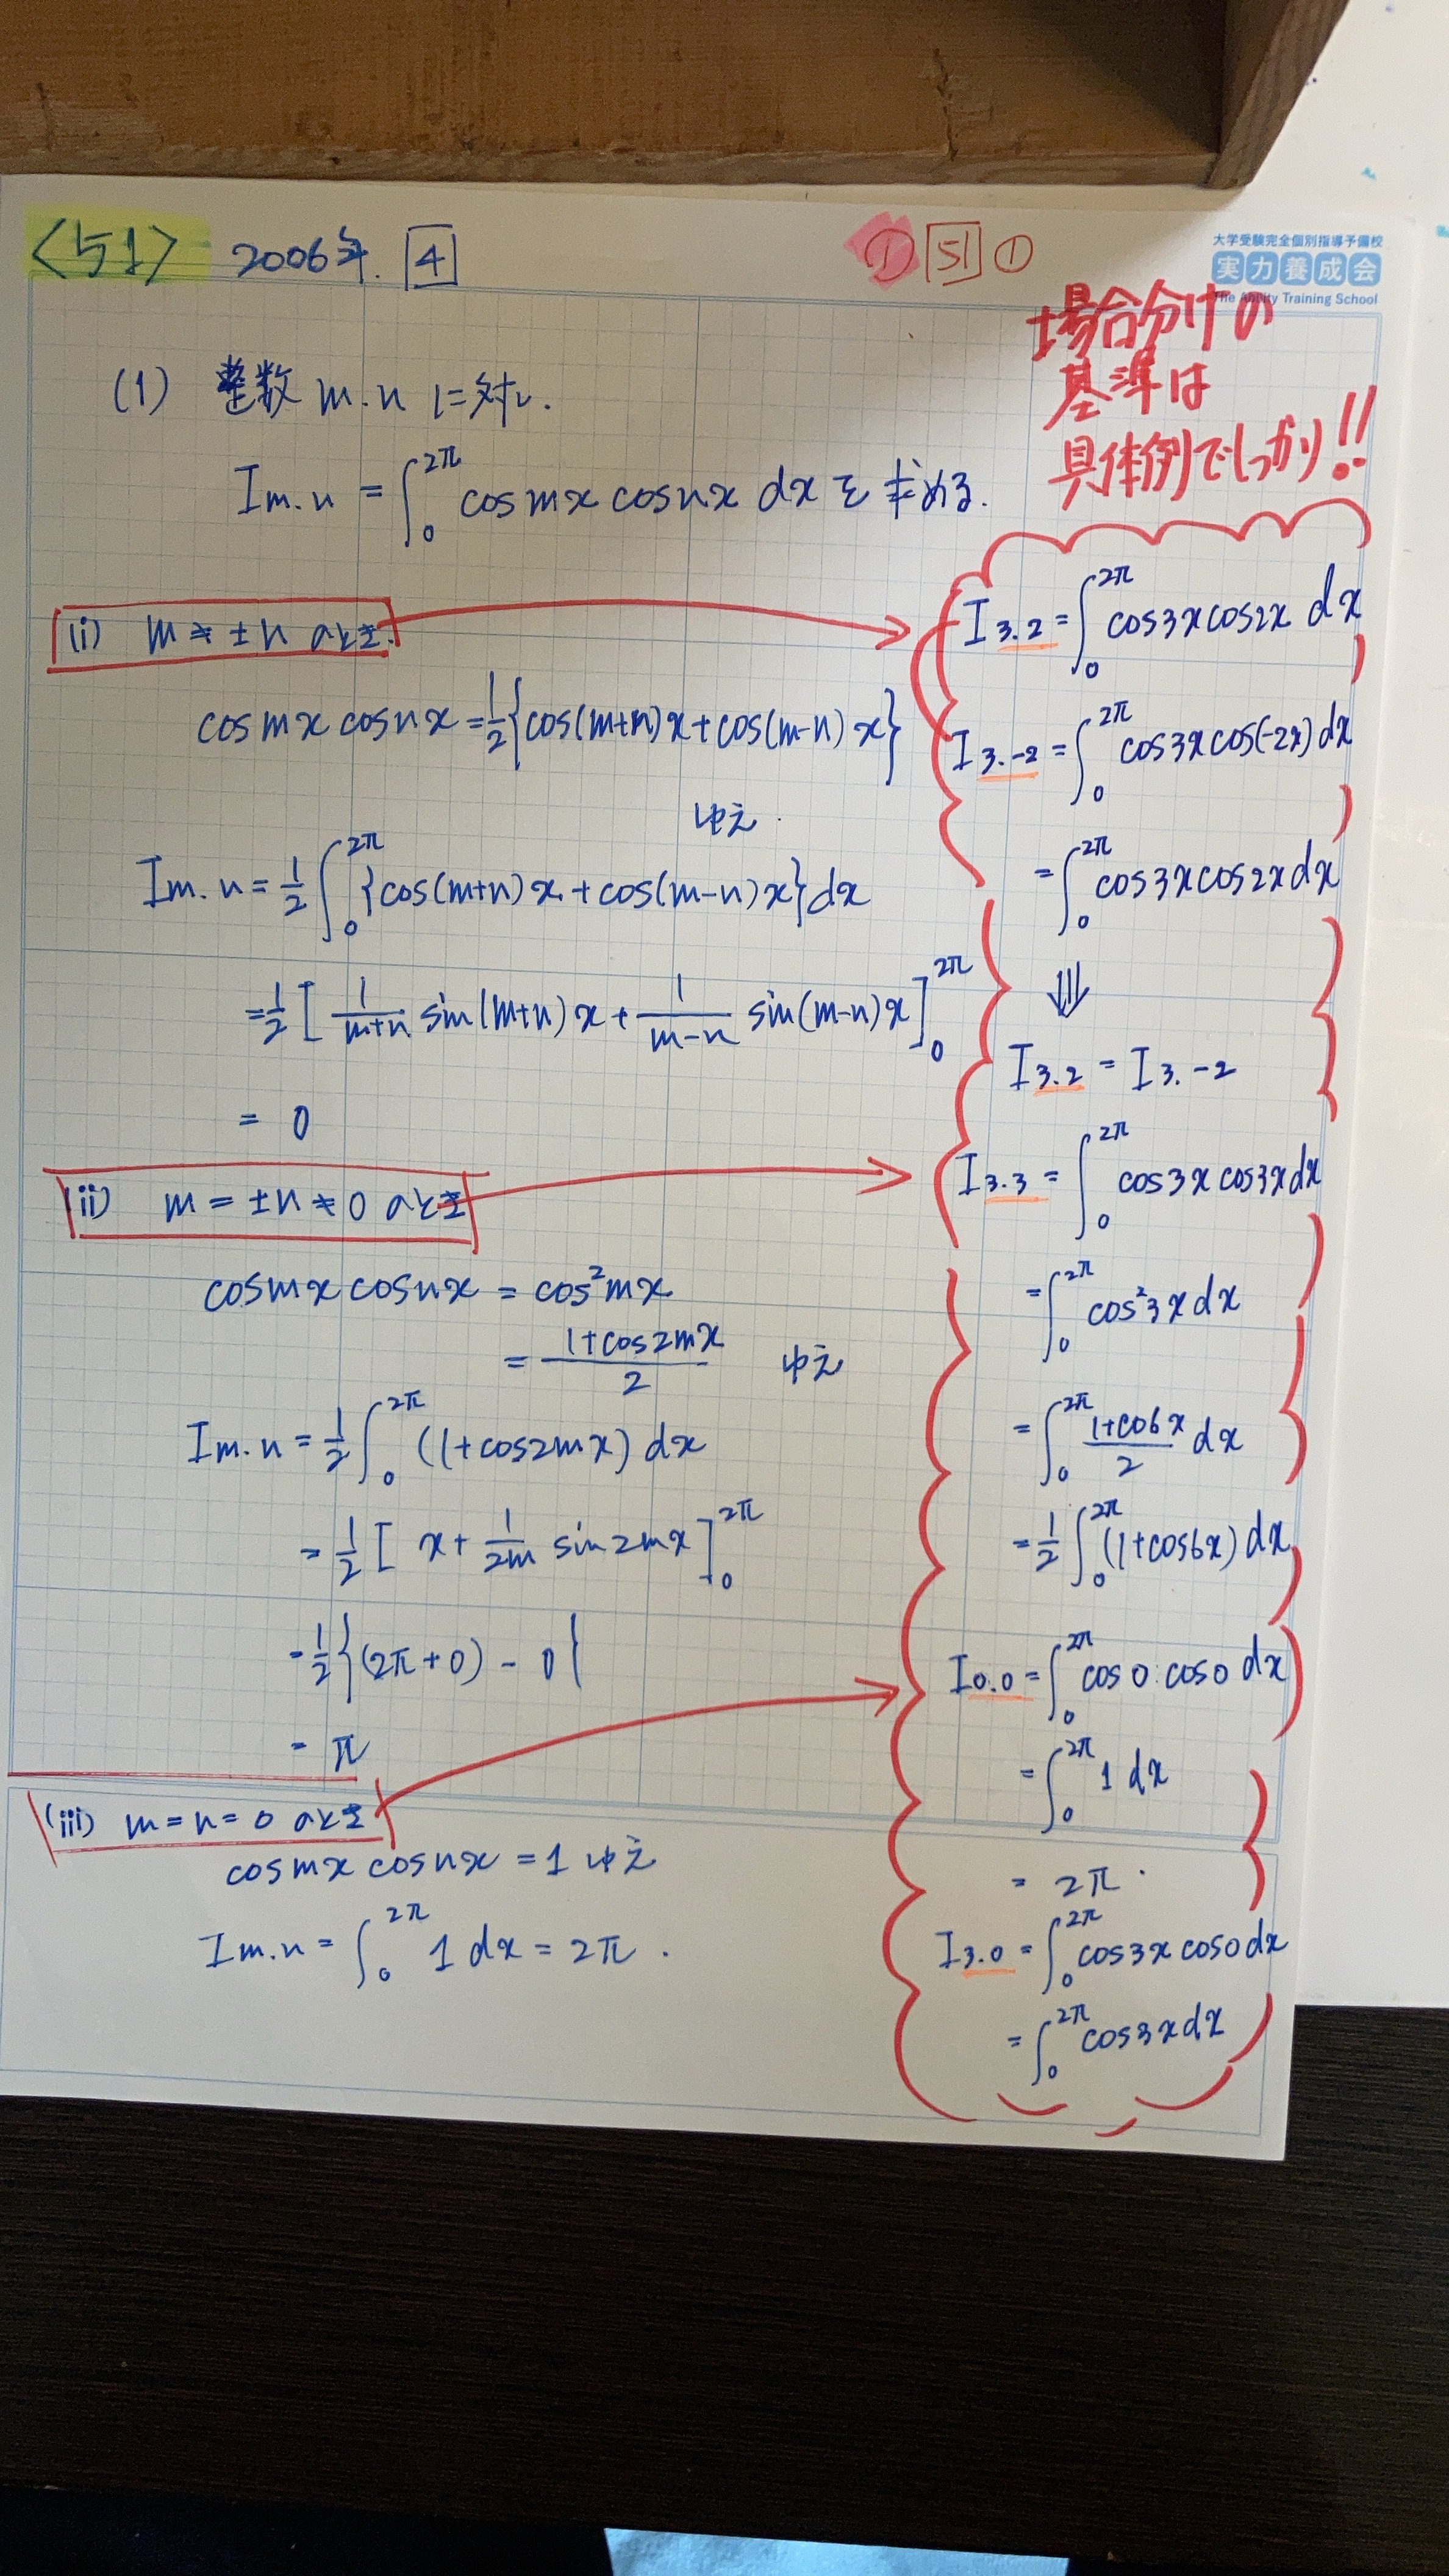 〈51〉 2006年. 4
① 51 ①
大学受験完全個別指導予備校
実力養成会
The Ability Training School
場合分けの
基準は
具体例でしっかり!!
(1) 整数 m.n に対し.
Im.n = ∫₀^2π cosmx cosnx dx を求める.
(i) m ≠ ±n のとき.
cosmx cosnx = 1/2{cos(m+n)x+cos(m-n)x}
ゆえ.
Im.n = 1/2 ∫₀^2π {cos(m+n)x+cos(m-n)x}dx
= 1/2 [ 1/(m+n) sin(m+n)x + 1/(m-n) sin(m-n)x ]₀^2π
= 0
(ii) m = ±n ≠ 0 のとき
cosmx cosnx = cos²mx
= (1+cos2mx)/2 ゆえ
Im.n = 1/2 ∫₀^2π (1+cos2mx) dx
= 1/2 [ x + 1/2m sin2mx ]₀^2π
= 1/2 {(2π+0) - 0}
= π
(iii) m = n = 0 のとき
cosmx cosnx = 1 ゆえ
Im.n = ∫₀^2π 1 dx = 2π .
I3.2 = ∫₀^2π cos3xcos2x dx
I3.-2 = ∫₀^2π cos3xcos(-2x)dx
= ∫₀^2π cos3xcos2xdx
⇓
I3.2 = I3.-2
I3.3 = ∫₀^2π cos3x cos3xdx
= ∫₀^2π cos²3xdx
= ∫₀^2π (1+cos6x)/2 dx
= 1/2 ∫₀^2π (1+cos6x) dx
I0.0 = ∫₀^2π cos0·cos0 dx
= ∫₀^2π 1 dx
= 2π .
I3.0 = ∫₀^2π cos3x cos0dx
= ∫₀^2π cos3xdx